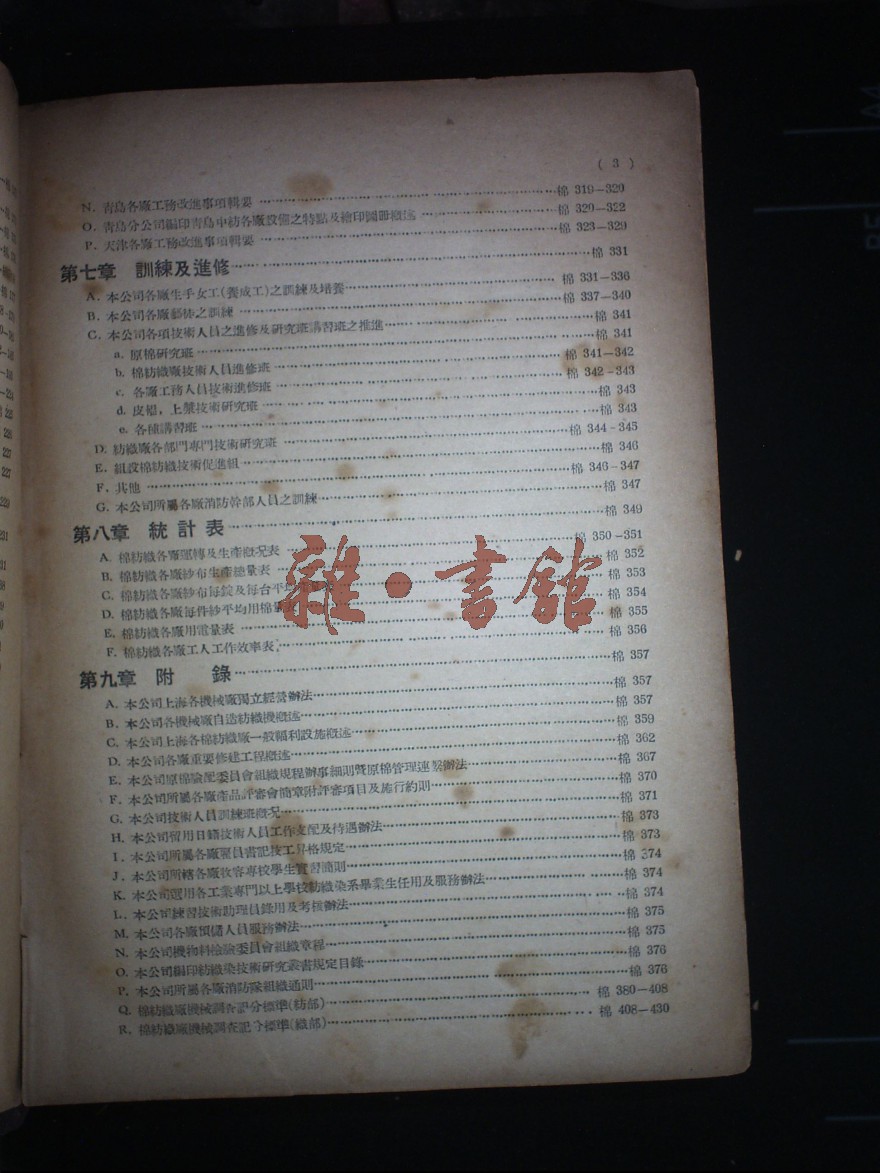 ( 3 )
N. 青島各廠工務改進事項輯要 棉 319—329
O. 青島分公司編印青島中紡各廠設備之特點及繪印圖冊概述 棉 320—322
P. 天津各廠工務改進事項輯要 棉 323—329
第七章 訓練及進修 棉 331
A. 本公司各廠生手女工(養成工)之訓練及培養 棉 331—336
B. 本公司各廠藝徒之訓練 棉 337—340
C. 本公司各項技術人員之進修及研究班講習班之推進 棉 341
a. 原棉研究班 棉 341
b. 棉紡織廠技術人員進修班 棉 341—342
c. 各廠工務人員技術進修班 棉 342-343
d. 皮輥,上漿技術研究班 棉 343
e. 各種講習班 棉 343
D. 紡織廠各部門專門技術研究班 棉 344-345
E. 組設棉紡織技術促進組 棉 346
F. 其他 棉 346-347
G. 本公司所屬各廠消防幹部人員之訓練 棉 347
第八章 統計表 棉 349
A. 棉紡織各廠運轉及生產概況表 棉 350—351
B. 棉紡織各廠紗布生產總量表 棉 352
C. 棉紡織各廠紗布每錠及每台平均 棉 353
D. 棉紡織各廠每件紗平均用棉量表 棉 354
E. 棉紡織各廠用電量表 棉 355
F. 棉紡織各廠工人工作效率表 棉 356
第九章 附 錄 棉 357
A. 本公司上海各機械廠獨立經營辦法 棉 357
B. 本公司各機械廠自造紡織機概述 棉 357
C. 本公司上海各棉紡織廠一般福利設施概述 棉 359
D. 本公司各廠重要修建工程概述 棉 362
E. 本公司原棉驗配委員會組織規程辦事細則暨原棉管理連繫辦法 棉 367
F. 本公司所屬各廠產品評審會簡章附評審項目及施行約則 棉 370
G. 本公司技術人員訓練班概況 棉 371
H. 本公司留用日籍技術人員工作支配及待遇辦法 棉 373
I. 本公司所屬各廠雇員書記技工昇格規定 棉 373
J. 本公司所轄各廠收容專校學生實習簡則 棉 374
K. 本公司選用各工業專門以上學校紡織染系畢業生任用及服務辦法 棉 374
L. 本公司練習技術助理員錄用及考核辦法 棉 374
M. 本公司各廠預備人員服務辦法 棉 375
N. 本公司機物料檢驗委員會組織章程 棉 375
O. 本公司編印紡織染技術研究叢書規定目錄 棉 376
P. 本公司所屬各廠消防隊組織通則 棉 376
Q. 棉紡織廠機械調查記分標準(紡部) 棉 380—408
R. 棉紡織廠機械調查記分標準(織部) 棉 408—430
雜·書館